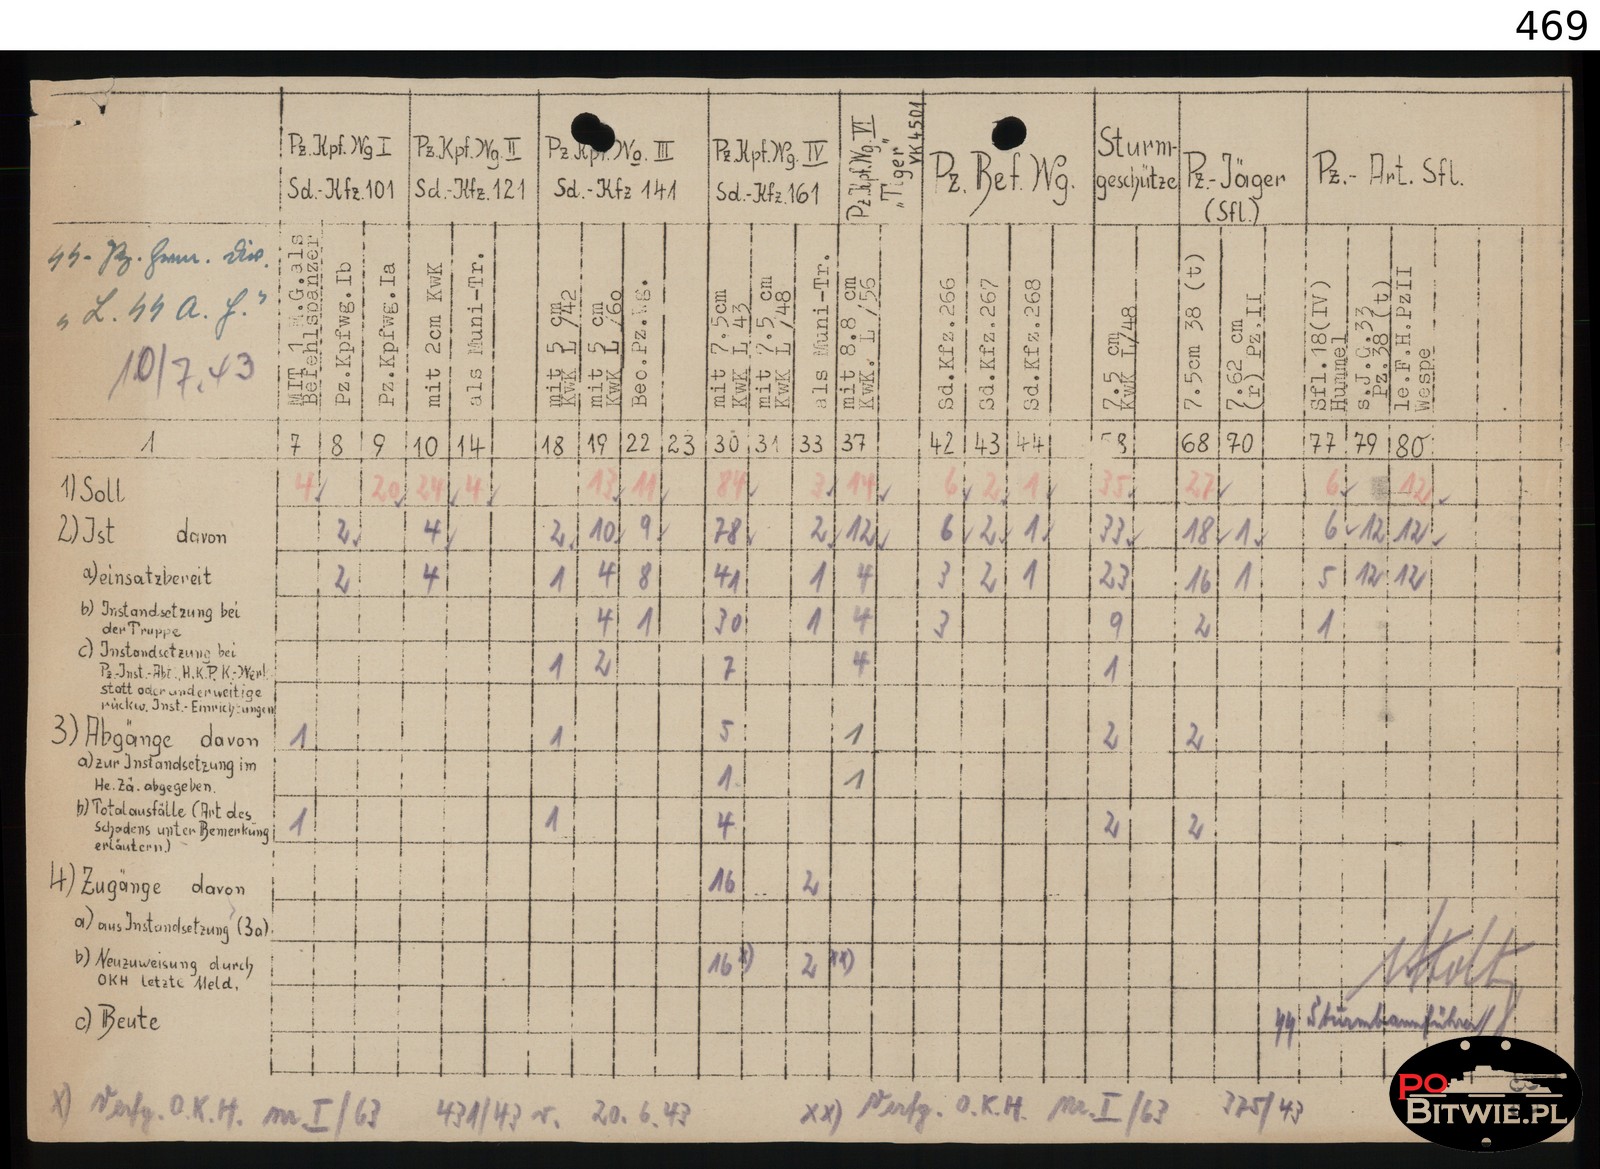 469
Pz.Kpf.Wg I Pz.Kpf.Wg. II Pz.Kpf.Wg. III Pz.Kpf.Wg. IV Pz.Kpf.Wg. VI "Tiger" VK 4501 Pz. Bef. Wg. Sturm- Pz.-Jäger Pz.- Art. Sfl.
Sd.-Kfz.101 Sd.-Kfz.121 Sd.-Kfz 141 Sd.-Kfz.161 geschütze (Sfl.)
"L. SS A. H."
10/7.43
MIT 1 M.G.als Befehlspanzer
Pz.Kpfwg.Ib
Pz.Kpfwg.Ia
mit 2cm KwK
als Muni-Tr.
mit 5 cm KwK L /42
mit 5 cm KwK L/60
Beo.Pz.Wg.
mit 7.5cm KwK L 43
mit 7.5 cm KwK L/48
als Muni-Tr.
mit 8.8 cm KwK. L /56
Sd.Kfz.266
Sd.Kfz.267
Sd.Kfz.268
7.5 cm KwK L/48
7.5cm 38 (t)
7.62 cm (r) Pz.II
Sfl.18(IV) Hummel
s.J.G.33 Pz.38 (t)
le.F.H.PzII Wespe
1 7 8 9 10 14 18 19 22 23 30 31 33 37 42 43 44 8 68 70 77 79 80
1) Soll 4 20 24 4 13 11 84 3 14 6 2 1 35 27 6 12
2) Ist davon 2 4 2 10 9 78 2 12 6 2 1 33 18 1 6 12 12
a) einsatzbereit 2 4 1 4 8 41 1 4 3 2 1 23 16 1 5 12 12
b) Instandsetzung bei
der Truppe 4 1 30 1 4 3 9 2 1
c) Instandsetzung bei
Pz.-Inst.-Abt., H.K.P. K.-Werk 1 2 7 4 1
statt oder anderweitige
rückw. Inst.-Einrichtungen
3) Abgänge davon 1 1 5 1 2 2
a) zur Instandsetzung im
He. Za. abgegeben. 1 1
b) Totalausfälle (Art des
Schadens unter Bemerkung 1 1 4 2 2
erläutern.)
4) Zugänge davon 16 2
a) aus Instandsetzung (3a)
b) Neuzuweisung durch 16 x) 2 xx)
OKH letzte Meld.
c) Beute
SS Sturmbannführer
x) Verfg. O.K.H. Nr. I/63 431/43 v. 20.6.43 xx) Verfg. O.K.H. Nr. I/63 375/43
PO
BITWIE.PL